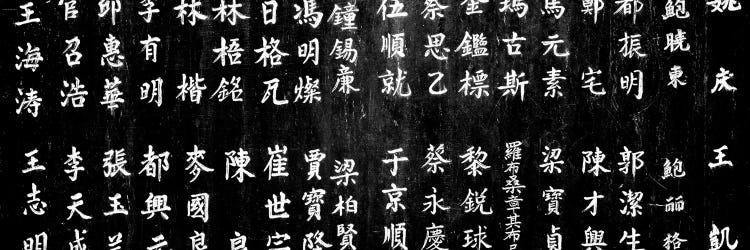 姚庆
鮑曉東
都振明
鄭宅
馬元素
瑪古斯
金鑑標
蔡思乙
伍順就
鐘錫廉
馮明燦
日格瓦
林梧銘
林楷
李有明
惠華
官召浩
王海涛
王凯
鮑丽格
郭潔生
陳才興
梁寶貞
羅布桑章其布
黎銳球
蔡永慶
于京順
梁柏賢
賈寶隆
崔世
陳良
麥國良
都興元
張玉
李天成
王志明